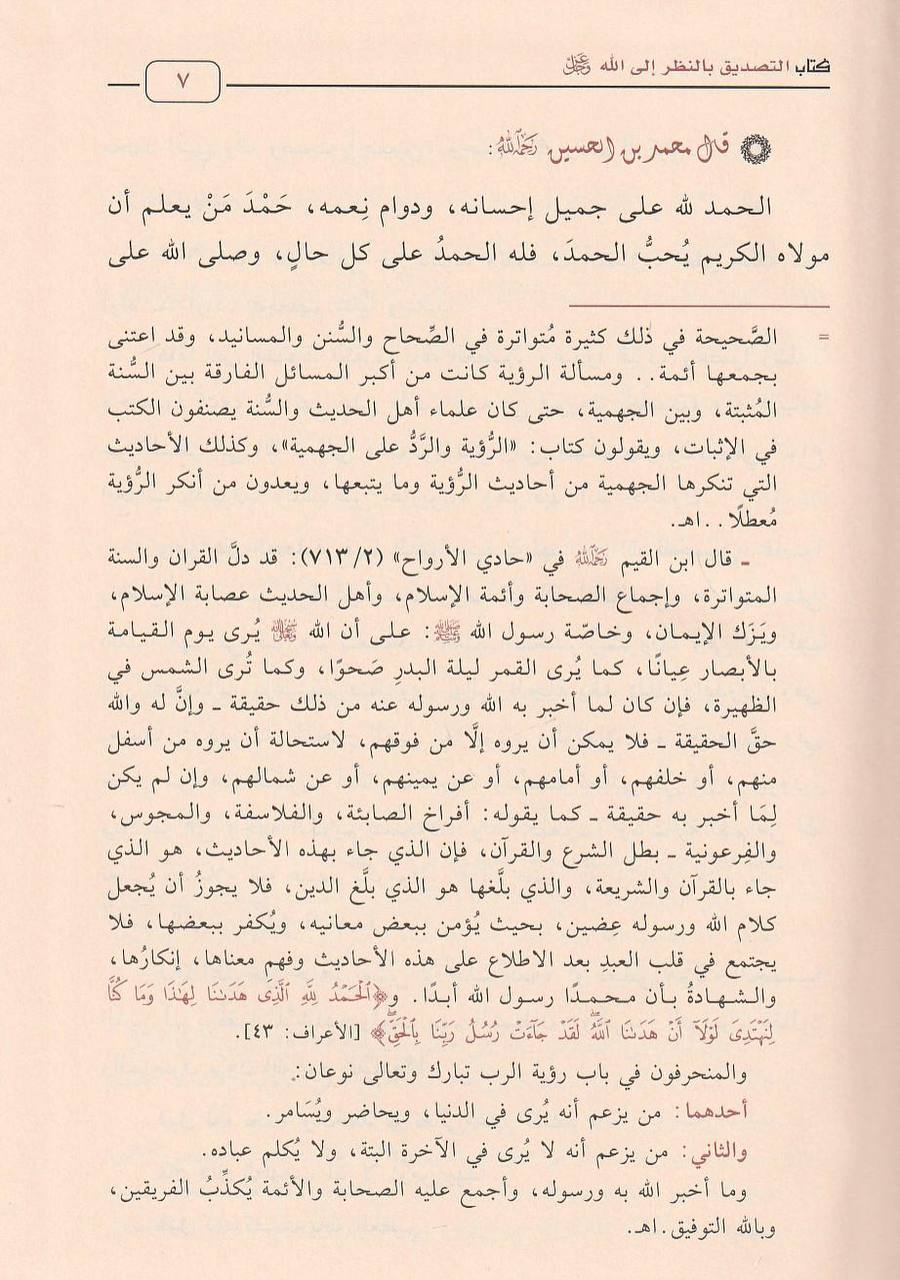 كتاب التصديق بالنظر إلى الله عَزَّوَجَلَّ
٧
قال محمد بن الحسين رَحِمَهُ ٱللَّهُ:
الحمد لله على جميل إحسانه، ودوام نِعمه، حَمْدَ مَنْ يعلم أن
مولاه الكريم يُحبُّ الحمدَ، فله الحمدُ على كل حالٍ، وصلى الله على
= الصَّحيحة في ذلك كثيرة مُتواترة في الصِّحاح والسُّنن والمسانيد، وقد اعتنى
بجمعها أئمة.. ومسألة الرؤية كانت من أكبر المسائل الفارقة بين السُّنة
المُثبتة، وبين الجهمية، حتى كان علماء أهل الحديث والسُّنة يصنفون الكتب
في الإثبات، ويقولون كتاب: «الرُّؤية والرَّدُّ على الجهمية»، وكذلك الأحاديث
التي تنكرها الجهمية من أحاديث الرُّؤية وما يتبعها، ويعدون من أنكر الرُّؤية
مُعطلًا..اهـ.
ـ قال ابن القيم رَحِمَهُ ٱللَّهُ في «حادي الأرواح» (٧١٣/٢): قد دلَّ القران والسنة
المتواترة، وإجماع الصحابة وأئمة الإسلام، وأهل الحديث عصابة الإسلام،
ويَزَك الإيمان، وخاصّة رسول الله ﷺ: على أن الله سُبْحَانَهُ وَتَعَالَى يُرى يوم القيامة
بالأبصار عِيانًا، كما يُرى القمر ليلة البدرِ صَحوًا، وكما تُرى الشمس في
الظهيرة، فإن كان لما أخبر به الله ورسوله عنه من ذلك حقيقة ـ وإنَّ له والله
حقَّ الحقيقة ـ فلا يمكن أن يروه إلَّا من فوقهم، لاستحالة أن يروه من أسفل
منهم، أو خلفهم، أو أمامهم، أو عن يمينهم، أو عن شمالهم، وإن لم يكن
لِمَا أخبر به حقيقة ـ كما يقوله: أفراخ الصابئة، والفلاسفة، والمجوس،
والفِرعونية ـ بطل الشرع والقرآن، فإن الذي جاء بهذه الأحاديث، هو الذي
جاء بالقرآن والشريعة، والذي بلَّغها هو الذي بلَّغ الدين، فلا يجوزُ أن يُجعل
كلام الله ورسوله عِضين، بحيث يُؤمن ببعض معانيه، ويُكفر ببعضها، فلا
يجتمع في قلب العبدِ بعد الاطلاع على هذه الأحاديث وفهم معناها، إنكارُها،
والشهادةُ بأن محمدًا رسول الله أبدًا. و﴿ٱلۡحَمۡدُ لِلَّهِ ٱلَّذِي هَدَىٰنَا لِهَٰذَا وَمَا كُنَّا
لِنَهۡتَدِيَ لَوۡلَآ أَنۡ هَدَىٰنَا ٱللَّهُۖ لَقَدۡ جَآءَتۡ رُسُلُ رَبِّنَا بِٱلۡحَقِّۖ﴾ [الأعراف: ٤٣].
والمنحرفون في باب رؤية الرب تبارك وتعالى نوعان:
أحدهما: من يزعم أنه يُرى في الدنيا، ويحاضر ويُسَامر.
والثاني: من يزعم أنه لا يُرى في الآخرة البتة، ولا يُكلم عباده.
وما أخبر الله به ورسوله، وأجمع عليه الصحابة والأئمة يُكذِّبُ الفريقين،
وبالله التوفيق.اهـ.